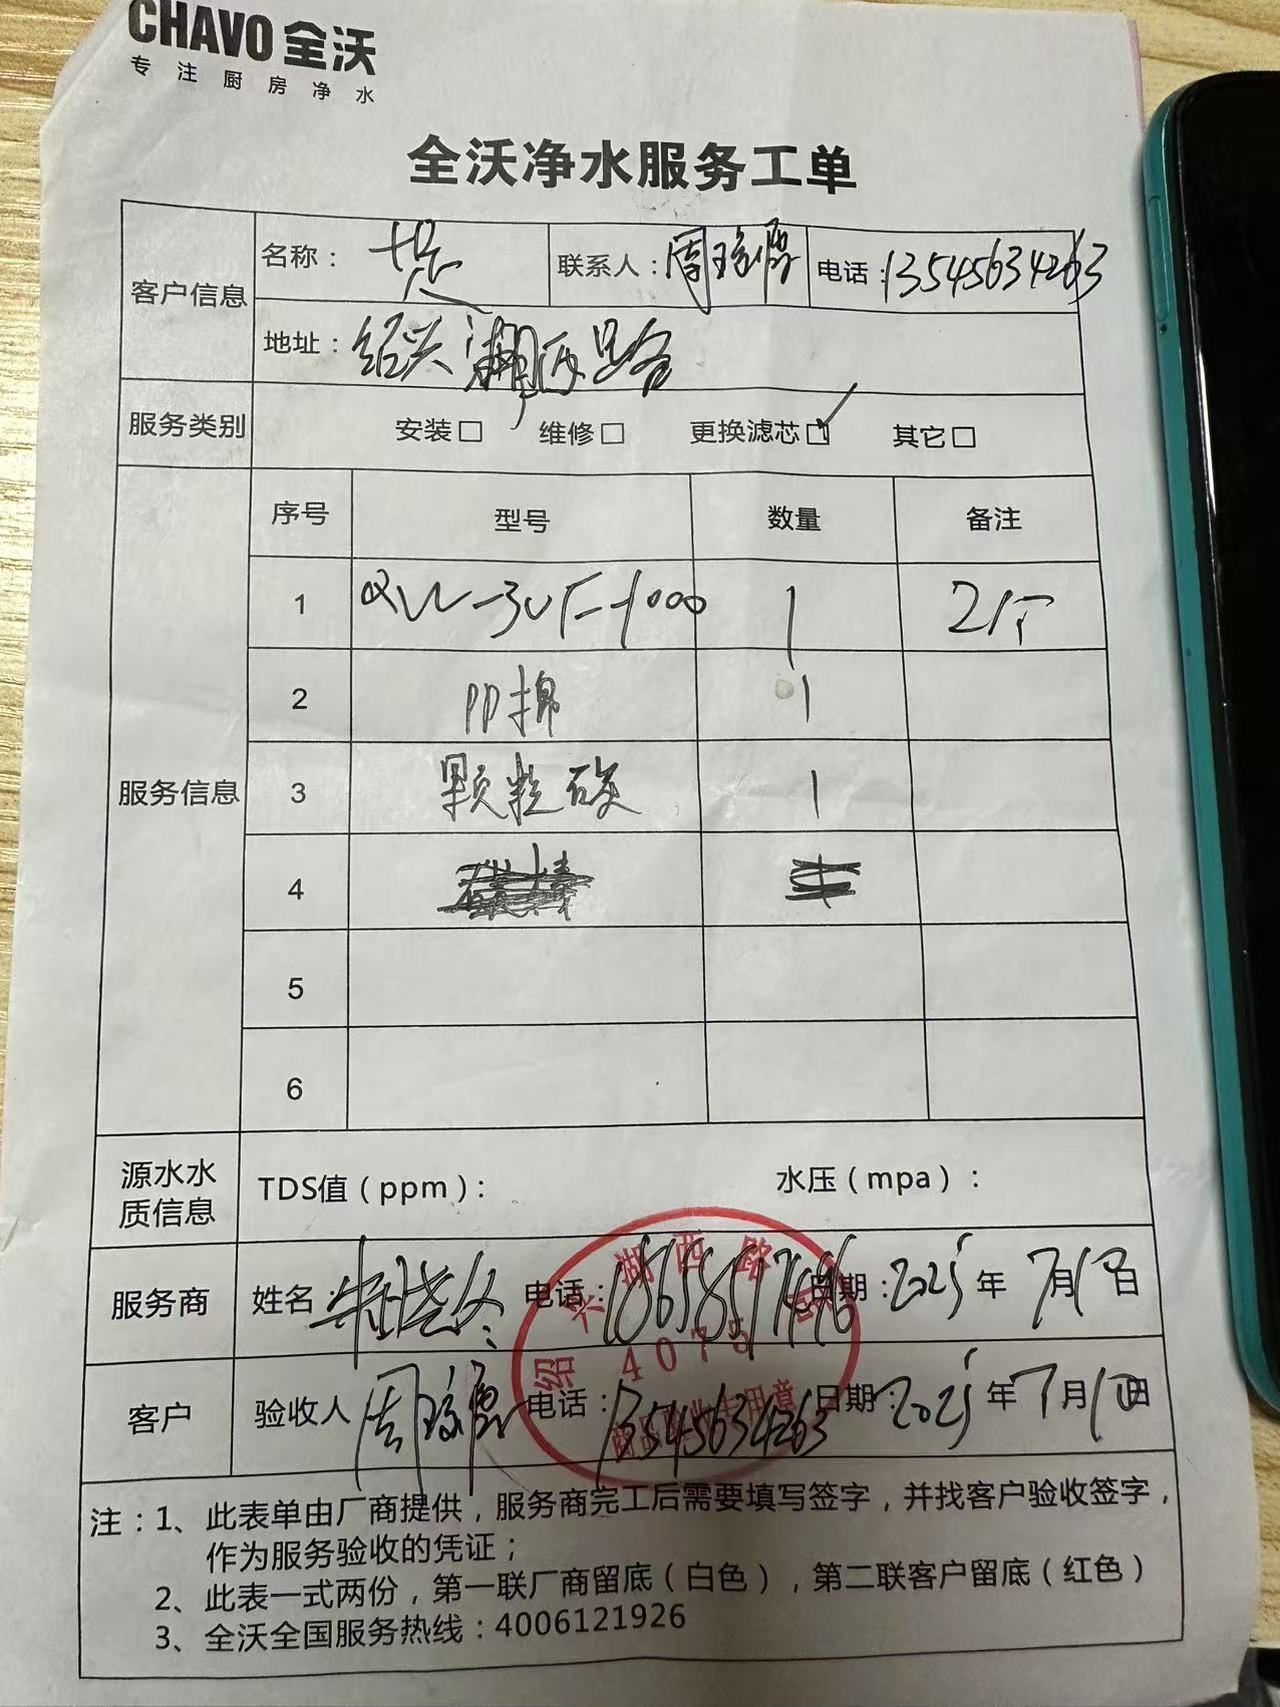 CHAVO 全沃
专注厨房净水
全沃净水服务工单
客户信息
名称：
联系人：周
电话：13545634263
地址：绍兴湖西路
服务类别
安装□ 维修□ 更换滤芯☑ 其它□
服务信息
序号 型号 数量 备注
1 QW-3UF-1000 1 2个
2 PP棉 1
3 颗粒碳 1
4
5
6
源水水质信息
TDS值（ppm）： 水压（mpa）：
服务商 姓名： 电话： 日期：2025年7月10日
客户 验收人 周 电话：13545634263 日期：2025年7月10日
绍兴湖西路
4075
用章
注：1、此表单由厂商提供，服务商完工后需要填写签字，并找客户验收签字，
作为服务验收的凭证；
2、此表一式两份，第一联厂商留底（白色），第二联客户留底（红色）
3、全沃全国服务热线：4006121926